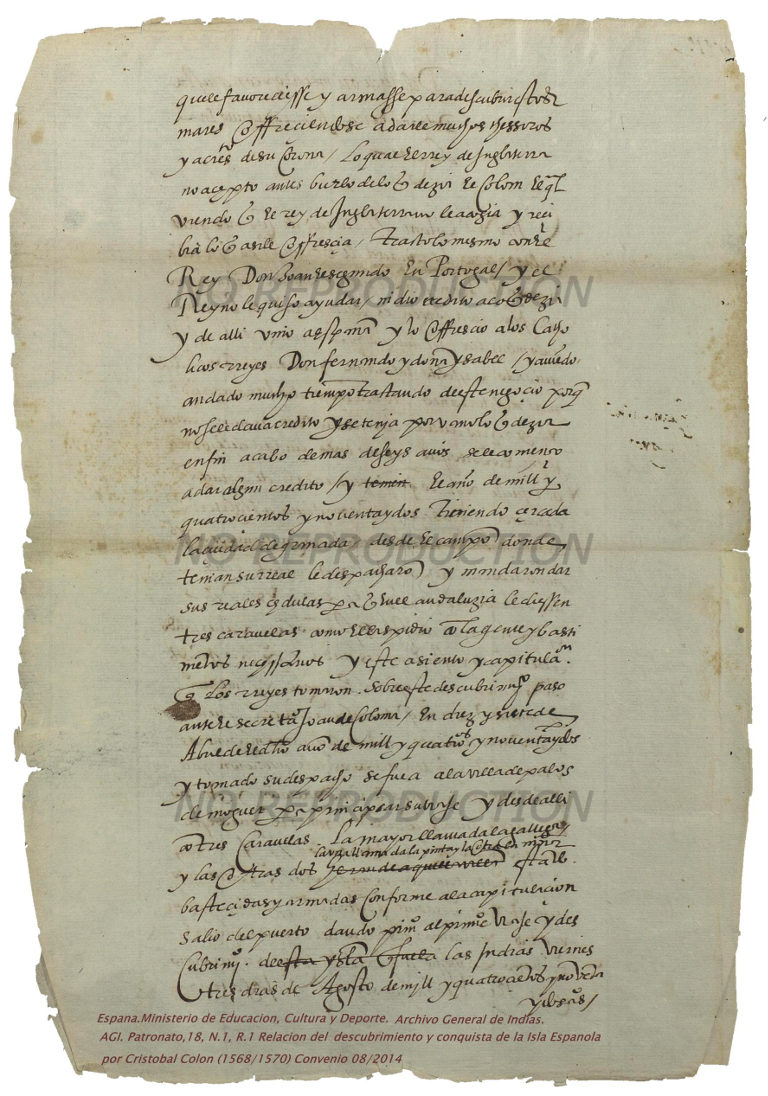 que le favoresciesse y armasse para descubrir estos
mares offreciendose a darle muchos thessoros
y acresto de su Corona / lo qual el rey de Inglaterra
no acepto antes burlo de lo q dezia el Colom el ql
viendo q el rey de Inglaterra no le acogia y reci
bia lo q a el le offrescia / trasto lo mismo con el
Rey Don Joan segundo En Portugal / y el
Rey no le quiso ayudar / ni dio credito a lo q dezia
y de alli vino a espana y lo offrescio a los Catho
licos rreyes Don fernando y doña ysabel / y aviendo
andado mucho tiempo trastando de este negocio porq
no se le dava credito y se tenja por vano lo q dezia
en fin acabo de mas de seys años se le començo
a dar algun credito / y tenien. El año de mill y
quatrocientos y noventa y dos Teniendo çercada
la çiudad de granada desde el campo donde
tenian su rreal le despacharon y mandaron dar
sus reales çedulas pa q en el andaluzia le diessen
tres caravelas como el las pidio con la gente y basti
mentos necessarios y este asiento y capitulaon.
q los rreyes tomaron. sobre este descubrimio paso
ante el secreto Joan de Coloma / En diez y siete de
Abril del dho año de mill y quatros y noventa y dos
y tomado su despacho se fue a la villa de palos
de moguer pa principiar su viaje y desde alli
con tres Caravelas La mayor llamada la gallega
la una llamada la pinta y la otra la niña
y las otras dos estando
basteçidas y armadas Conforme a la capitulaçion
Salio del puerto dando prino al primo viaje y des
Cubrimio. de esta ysla q fue a las Indias viernes
tres dias de Agosto de mill y quatrocientos y noventa
y dos años /
NO REPRODUCTION
NO REPRODUCTION
NO REPRODUCTION
Espana.Ministerio de Educacion, Cultura y Deporte. Archivo General de Indias.
AGI. Patronato,18, N.1, R.1 Relacion del descubrimiento y conquista de la Isla Espanola
por Cristobal Colon (1568/1570) Convenio 08/2014